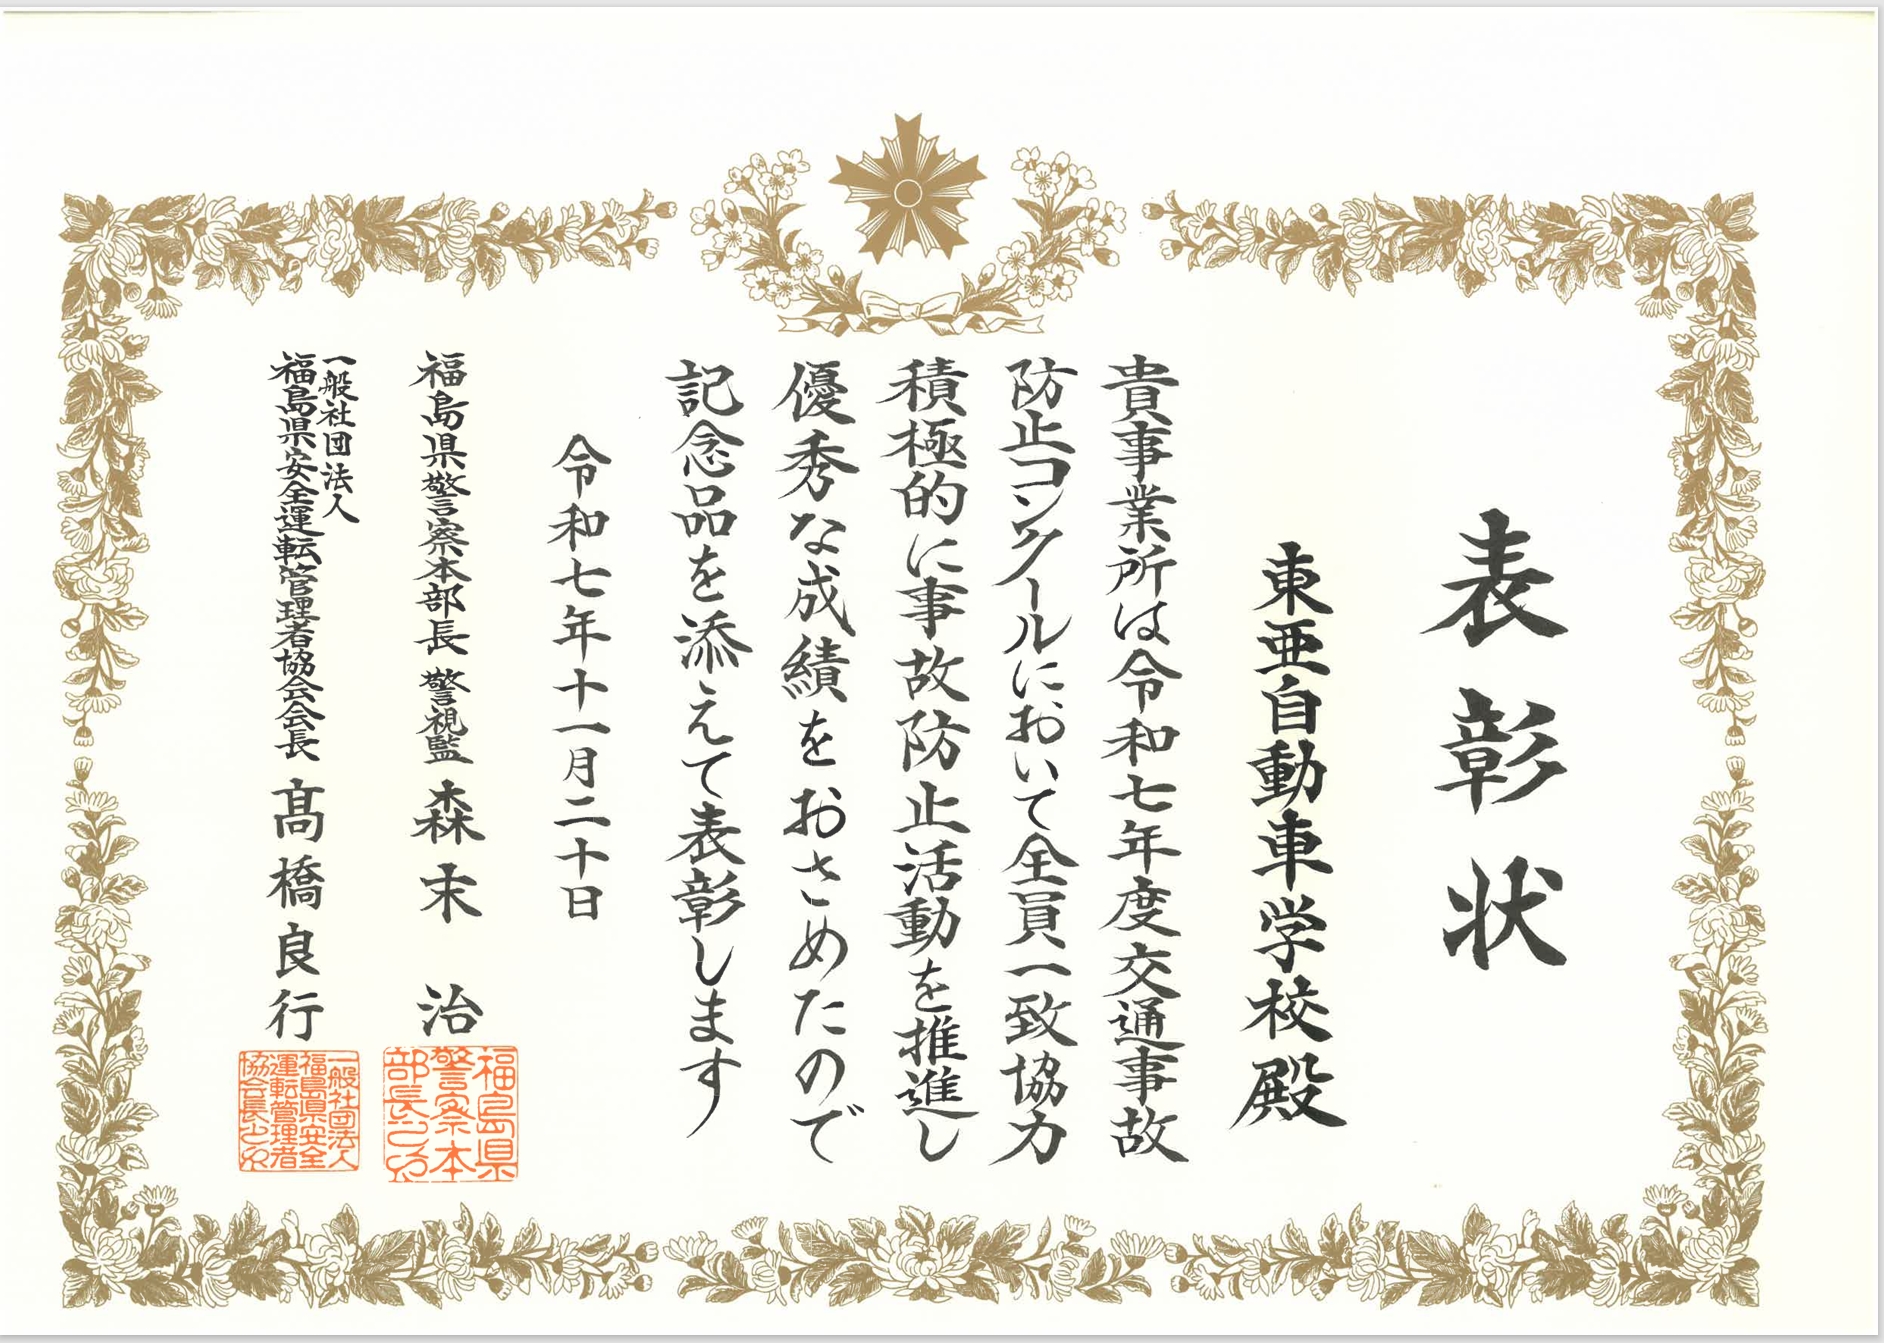 表彰状
東亜自動車学校殿
貴事業所は令和七年度交通事故
防止コンクールにおいて全員一致協力
積極的に事故防止活動を推進し
優秀な成績をおさめたので
記念品を添えて表彰します
令和七年十一月二十日
福島県警察本部長 警視監 森末 治
福島県警察本部長之印
一般社団法人
福島県安全運転管理者協会会長 髙橋良行
一般社団法人福島県安全運転管理者協会長之印